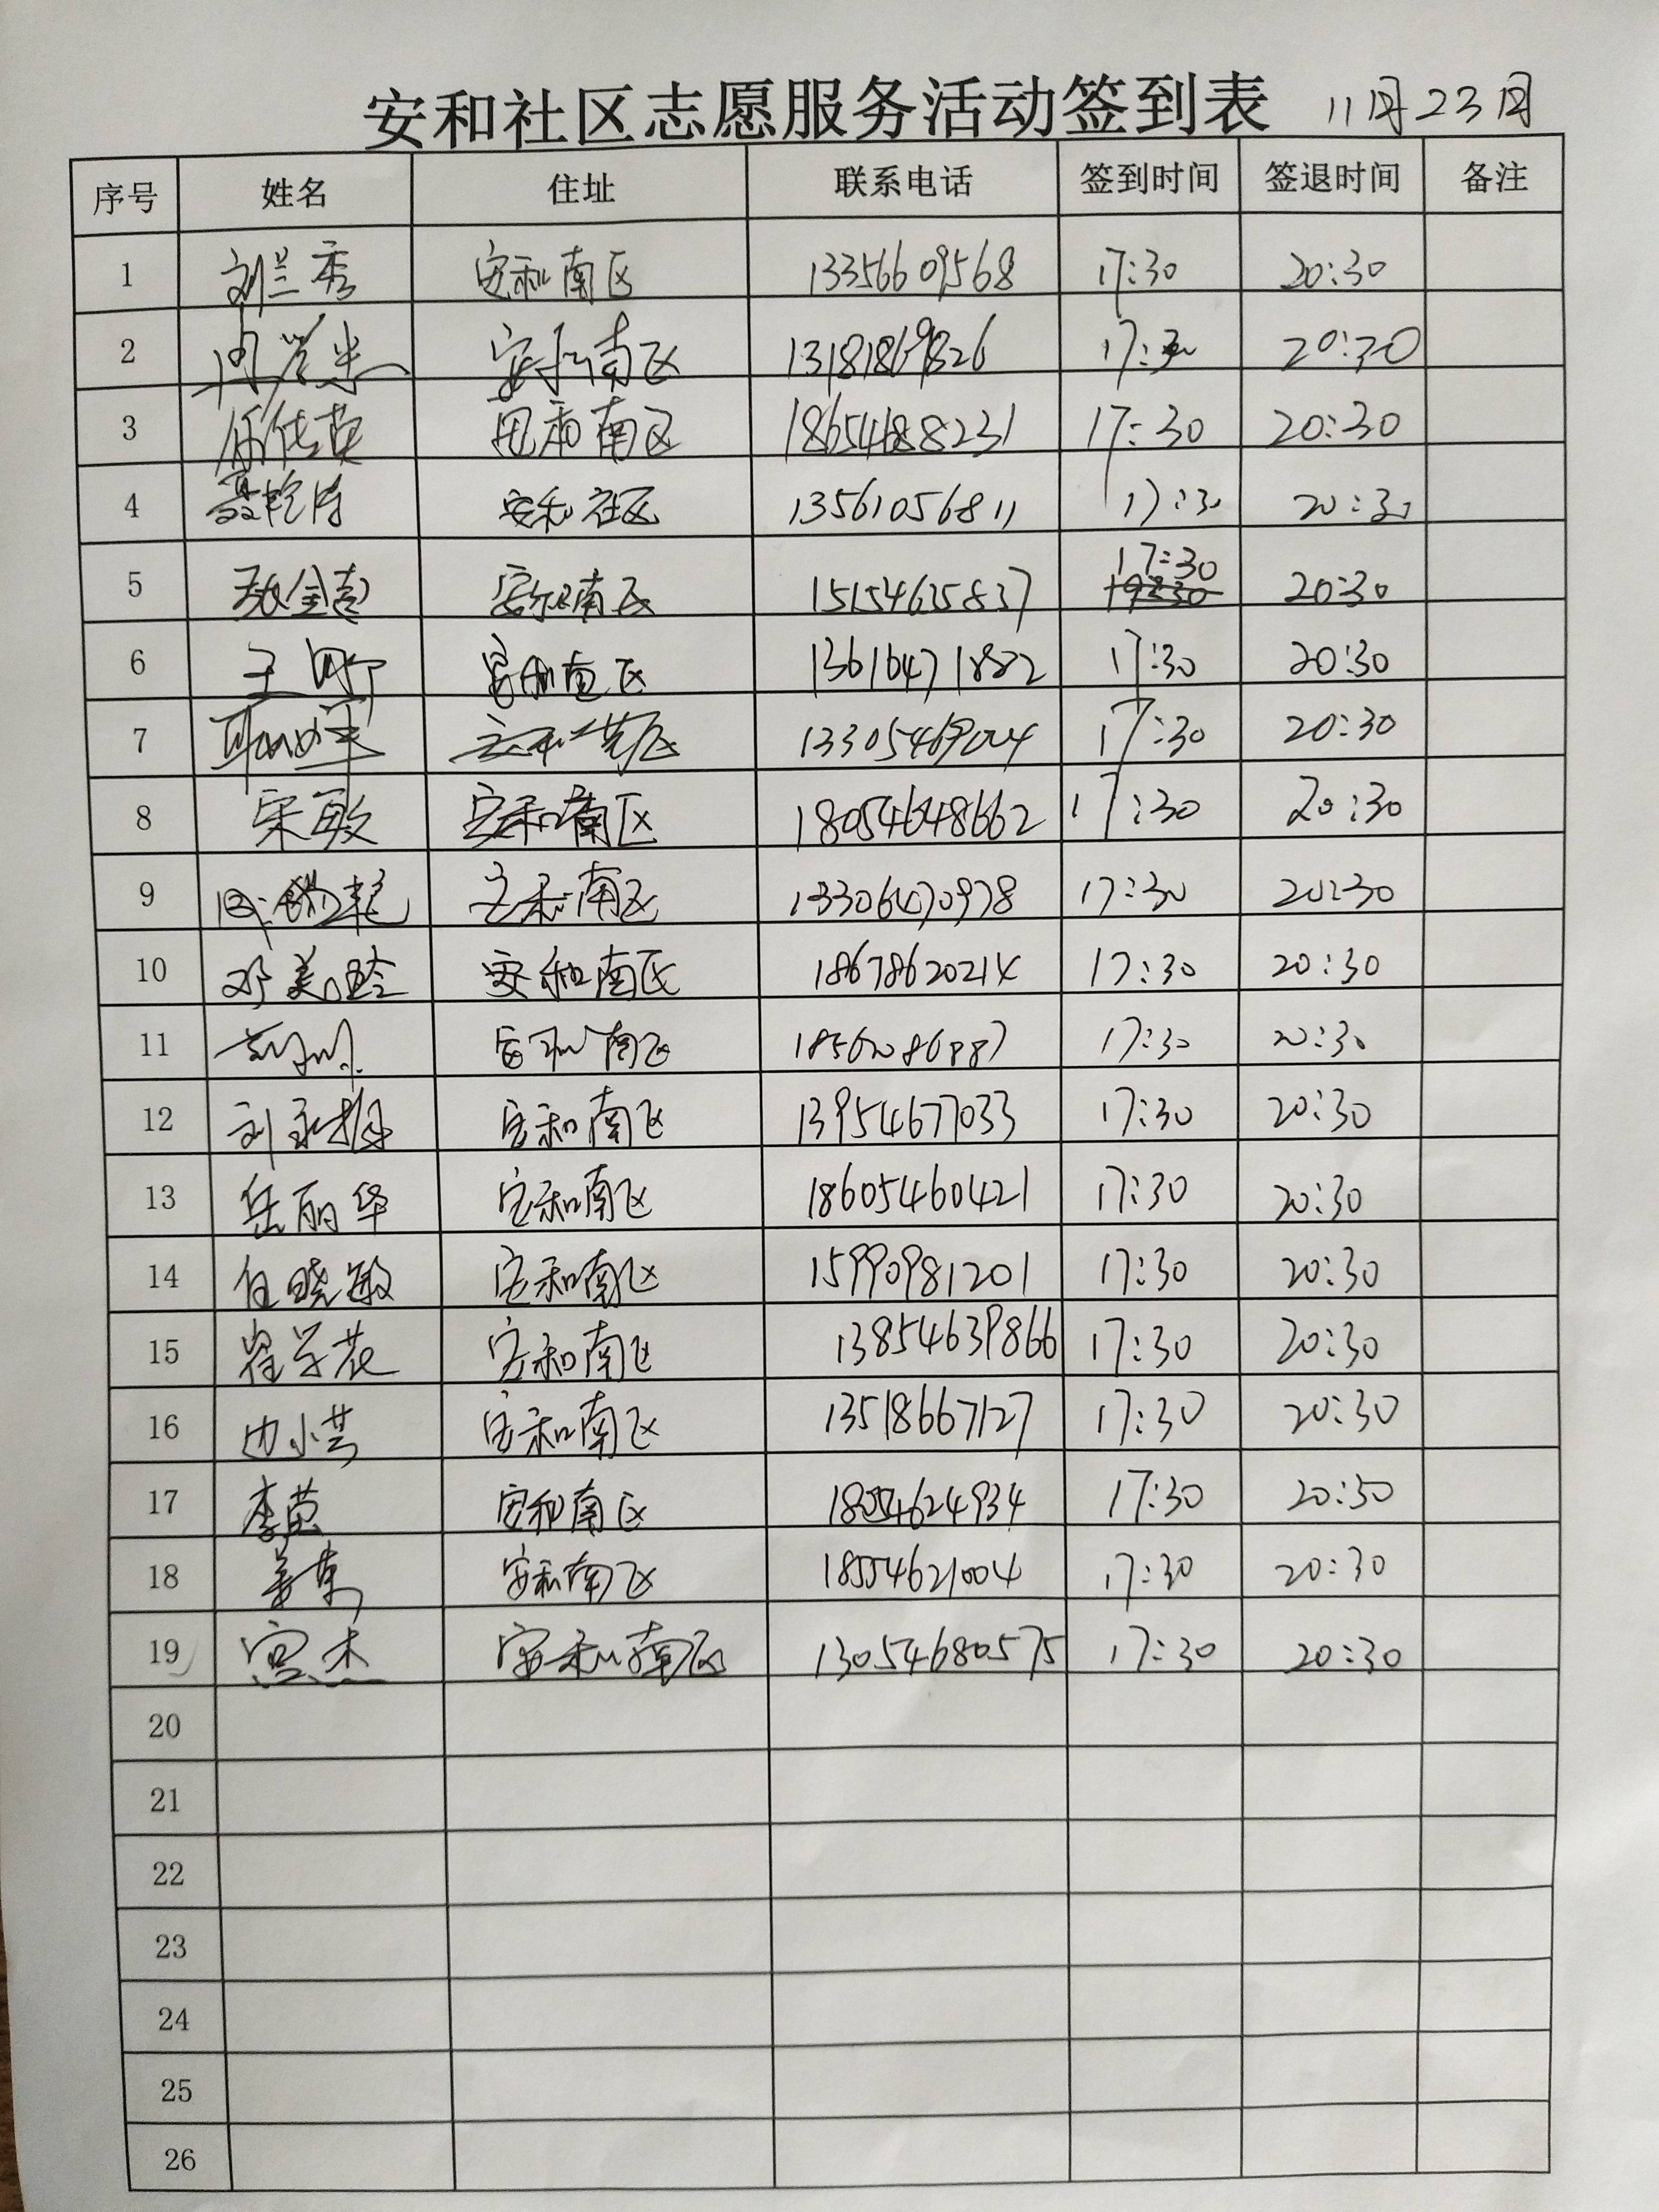 安和社区志愿服务活动签到表 11月23日
序号 姓名 住址 联系电话 签到时间 签退时间 备注
1 刘兰秀 安和南区 13356609568 17:30 20:30
2 安和南区 13181869826 17:30 20:30
3 任佳英 安和南区 18654688231 17:30 20:30
4 安和社区 13561056811 17:30 20:30
5 安和南区 15154625837 17:30 20:30
6 王 安和南区 13616471882 17:30 20:30
7 13305469004 17:30 20:30
8 宋敏 安和南区 18054648662 17:30 20:30
9 安和南区 13306470978 17:30 20:30
10 邓美玲 安和南区 18678620214 17:30 20:30
11 安和南区 17:30 20:30
12 刘永梅 安和南区 13954677033 17:30 20:30
13 岳丽华 安和南区 18605460421 17:30 20:30
14 任晓敏 安和南区 15990981201 17:30 20:30
15 崔学花 安和南区 13854639866 17:30 20:30
16 边小芸 安和南区 13518667127 17:30 20:30
17 李英 安和南区 18054624934 17:30 20:30
18 姜東 安和南区 18554621004 17:30 20:30
19 宫杰 安和南区 13054680575 17:30 20:30
20
21
22
23
24
25
26